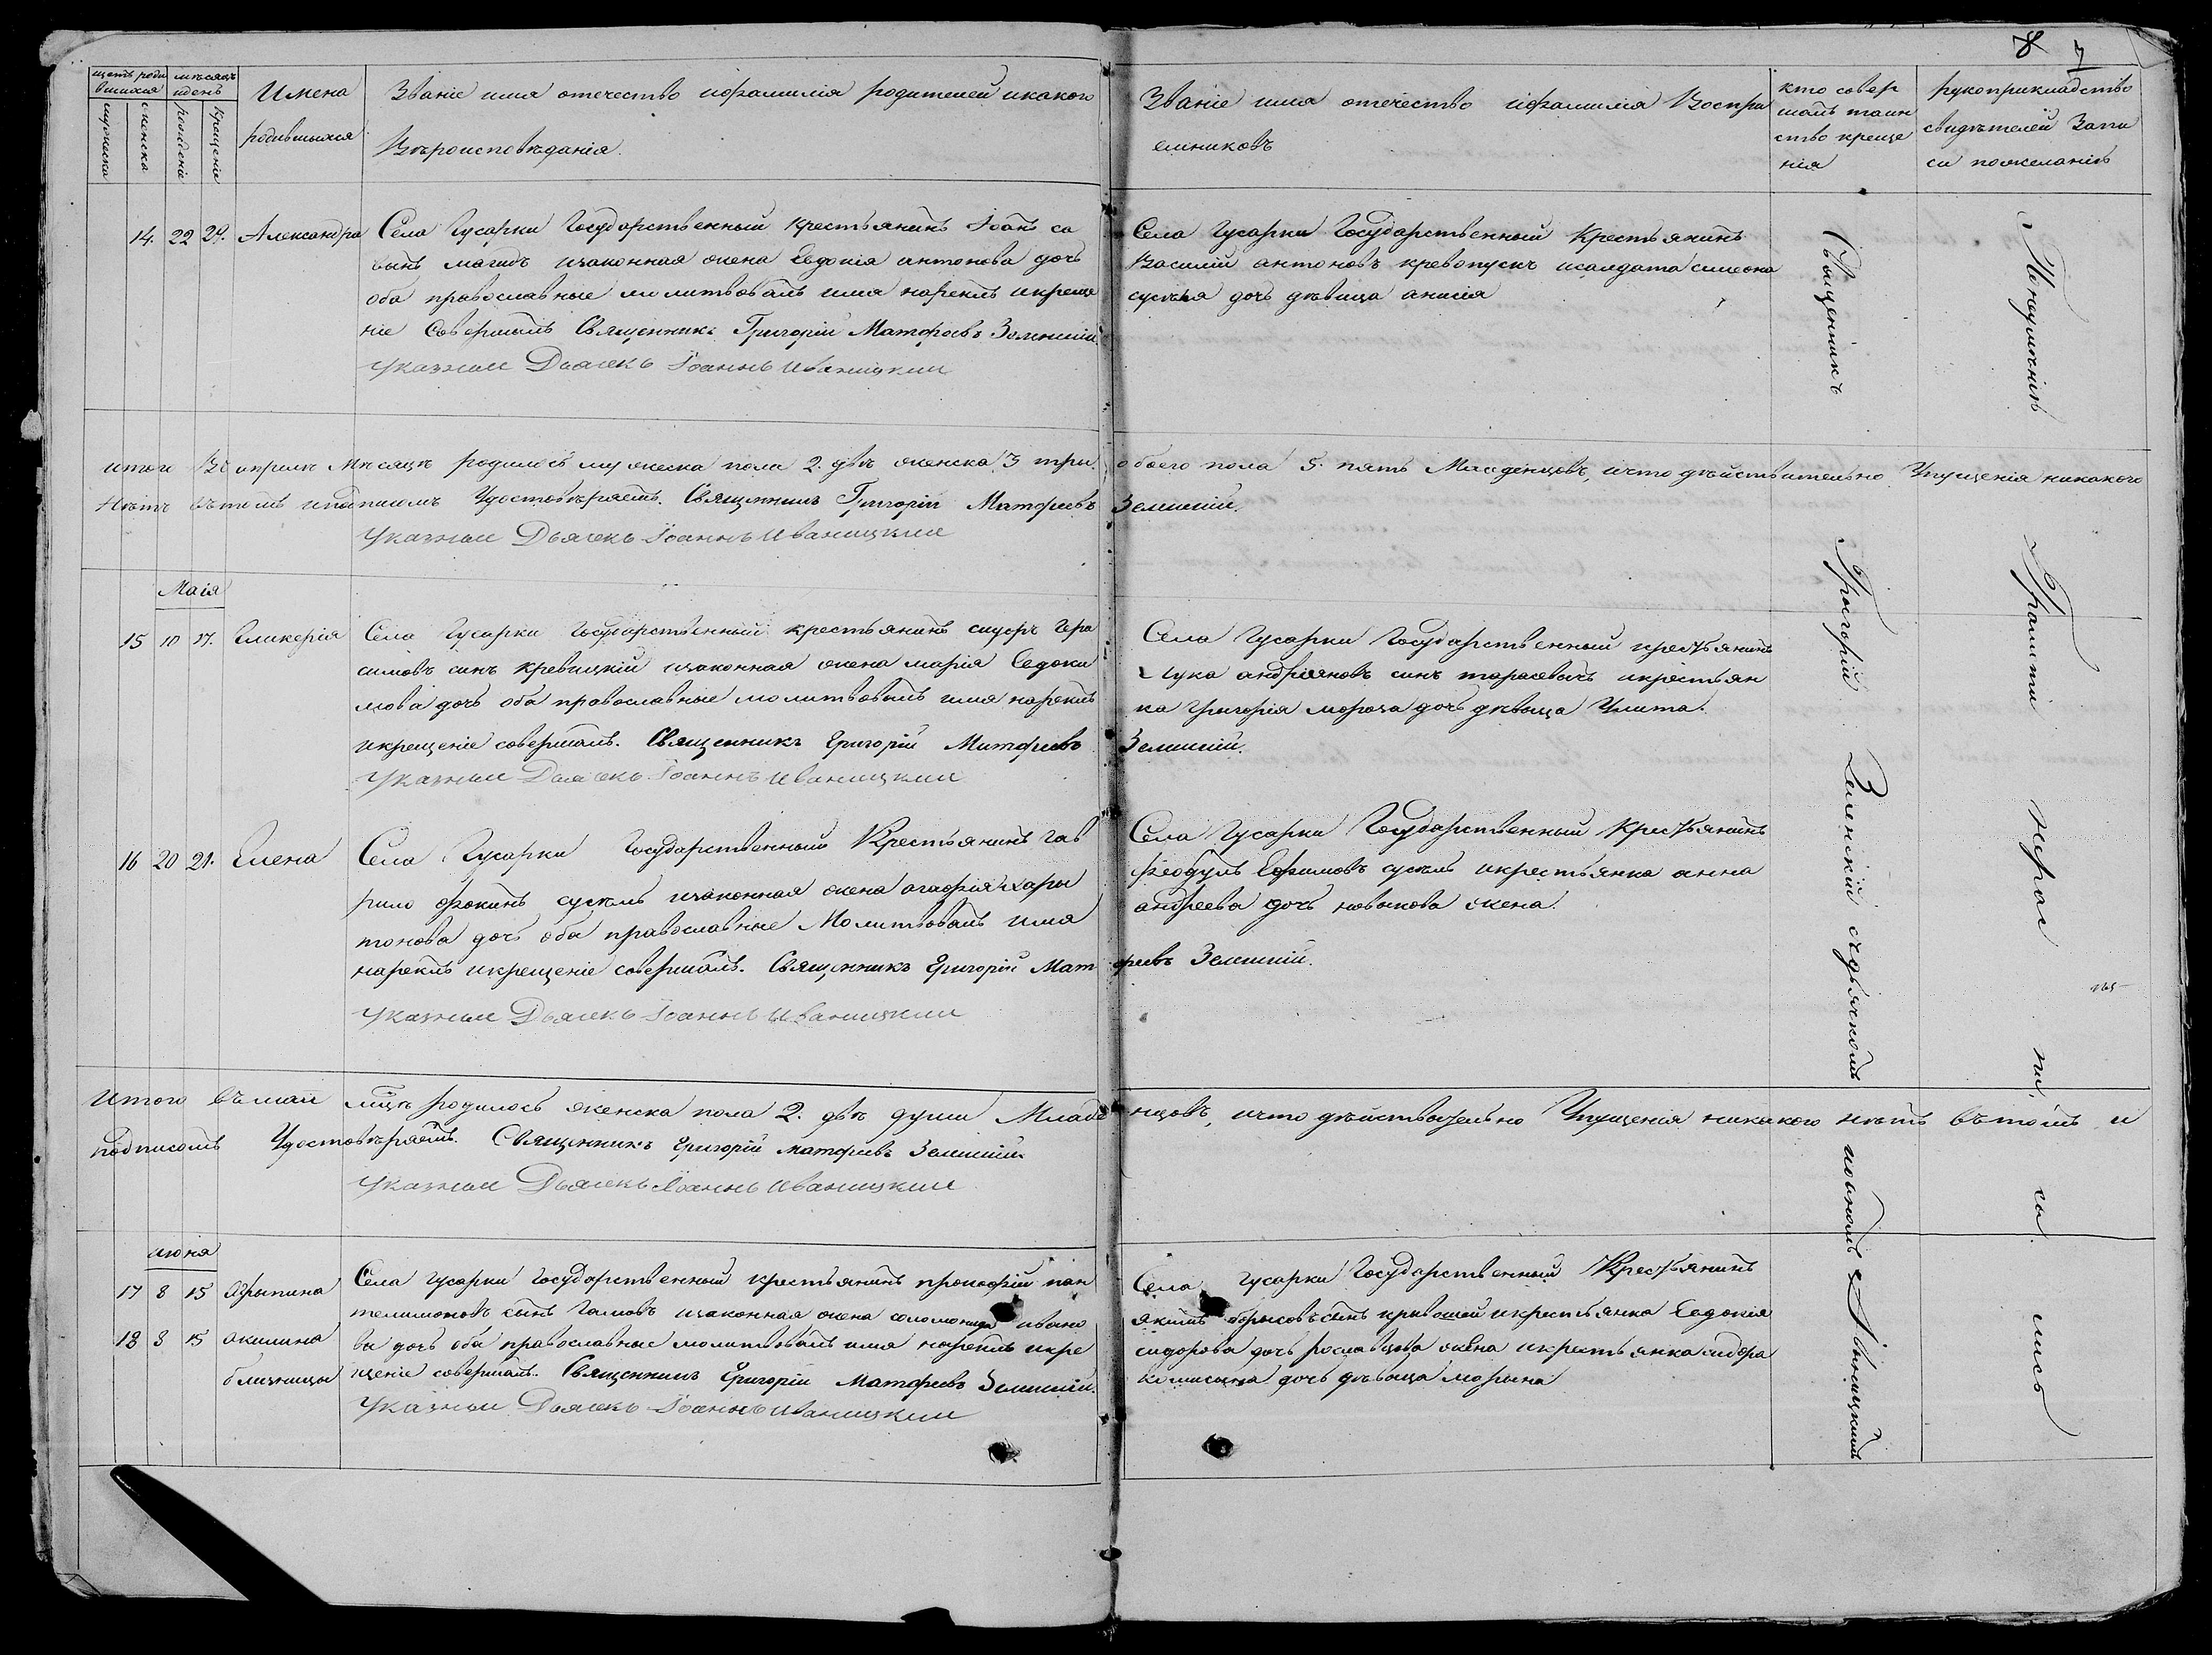 8 7
щетъ роди
вшихся
мѣсяцъ
идень
мужеска
женска
рожденіе
крещеніе
Имена
родившихся
Званіе имя отечество ифамилія родителей икакого
Вѣроисповѣданія.
Званіе имя отечество ифамилія Воспри
емниковъ
кто совер
шалъ таин
ство креще
нія
рукоприкладство
свидѣтелей Запи
си пожеланію
14. 22 29. Александра
Села Гусарки Государственный крестьянинъ Іоанъ са
вынъ магидъ изаконная жена Евдокія антонова дочь
оба православные молитвовалъ имя нарекъ икреще
ніе Совершалъ Священникъ Григорій Матфеевъ Зеленскій.
Указный Дьячекъ Іоаннъ Иваницкий
Села Гусарки Государственный Крестьянинъ
Василий антоновъ кревопускъ исалдата симеона
сускъля дочь дѣвица анисія
итого Въ априлѣ Мѣсяцѣ родилось мужеска пола 2. двѣ женска 3 три. обоего пола 5. пять Младенцовъ, ичто дѣйствительно Упущенія никакого
Нѣтъ вътомъ иподписомъ Удостовѣряетъ. Священникъ Григорій Матфеевъ Зеленскій.
Указный Дьячекъ Іоаннъ Иваницкий
Маія
15 10 17. Гликерія
Села Гусарки Государственный крестьянинъ сидоръ Гера
симовъ синъ кревицкій изаконная жена марія Евдоки
мова дочь оба православные молитвовалъ имя нарекъ
икрещеніе совершалъ. Священникъ Григорій Матфеевъ Зеленскій.
Указный Дьячекъ Іоаннъ Иваницкий
Села Гусарки Государственный крестьянинъ
Лука андріяновъ синъ тарасевичъ икрестьян
ка Григорія мороза дочь дѣвица Улита.
16 20 21. Елена
Села Гусарки Государственный Крестьянинъ гав
рило фокинъ сускъль изаконная жена агафія хари
тонова дочь оба православные Молитвовалъ имя
нарекъ икрещеніе совершалъ. Священникъ Григорій Матфеевъ Зеленскій.
Указный Дьячекъ Іоаннъ Иваницкий
Села Гусарки Государственный Крестьянинъ
феодулъ Ефимовъ сускъль икрестьянка анна
андреева дочь новакова жена.
Итого въмаи мцѣ родилось женска пола 2. двѣ души Младенцовъ, ичто дѣйствительно Упущенія никакого нѣтъ вътомъ и
подписомъ Удостовѣряетъ. Священникъ Григорій матфеевъ Зеленскій.
Указный Дьячекъ Іоаннъ Иваницкий
июня
17 8 15 Агрыпина
18 8 15 акилина
близницы
Села гусарки Государственный крестьянинъ прокофій пан
телимоновъ сынъ Гамовъ изаконная жена соломонида ивано
ва дочь оба православные молитвовалъ имя нарекъ икре
щеніе совершалъ. Священникъ Григорій Матфеевъ Зеленскій.
Указный Дьячекъ Іоаннъ Иваницкий
Села гусарки Государственный Крестьянинъ
якимъ борисовъ сынъ кривошей икрестьянка Евдокія
сидорова дочь рославцова жена икрестьянка сидора
комисара дочь дѣвица марына
Священникъ Григорій Зеленскій съдьячкомъ иоаномъ Иваницкимъ
Неумѣнію Грамоти нерос пи са лись